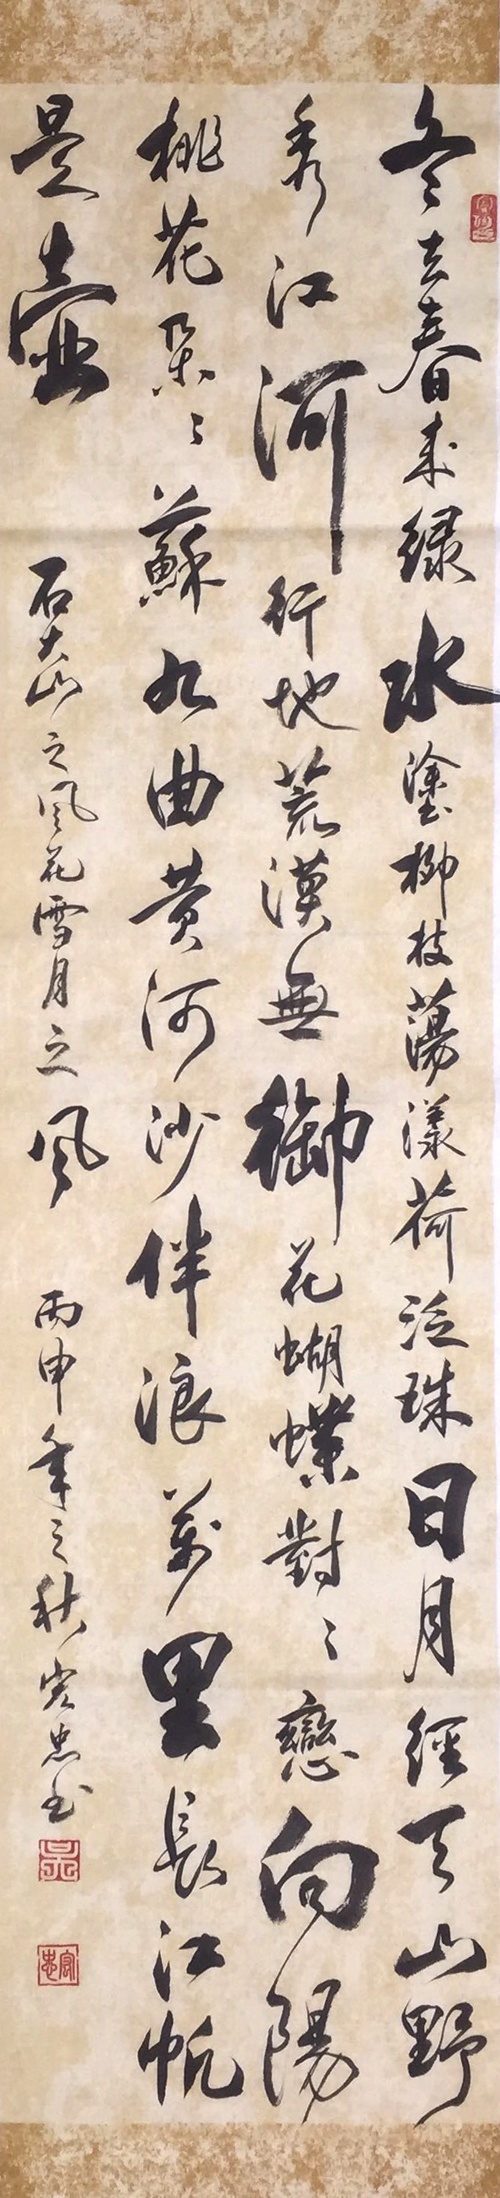 冬去春来绿水塗柳枝蕩漾荷泛珠日月經天山野
秀江河行地荒漠無御花蝴蝶對〻戀向陽
桃花朵〻蘇九曲黄河沙伴浪萬里長江帆
是壺 石大山之风花雪月之风 丙申年之秋 宏忠书